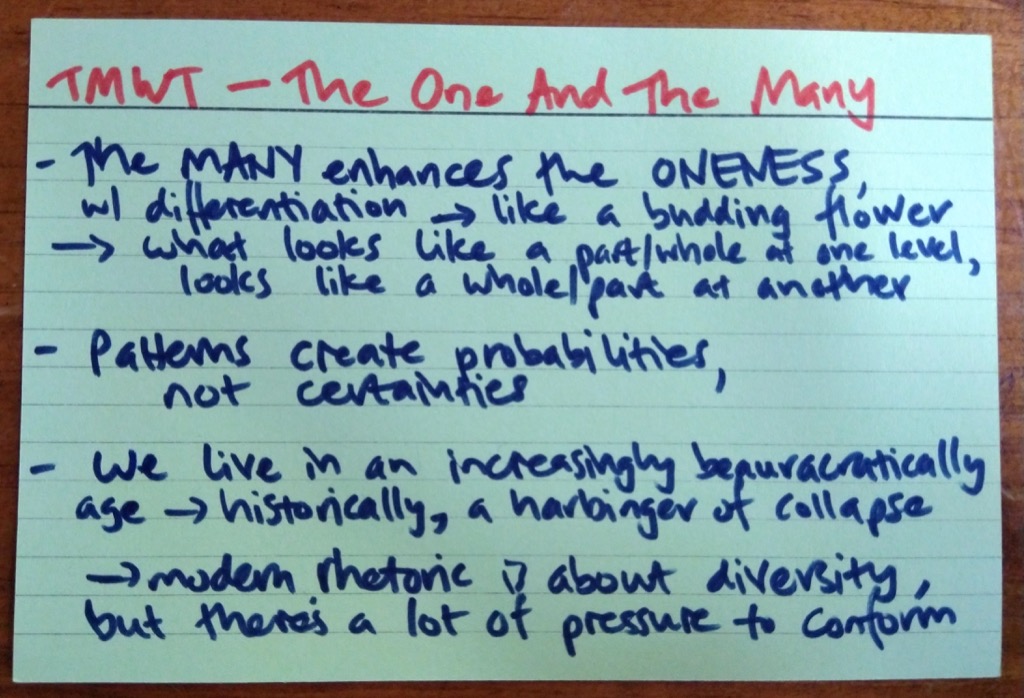 TMWT – The One And The Many
- The MANY enhances the ONENESS,
w/ differentiation → like a budding flower
→ what looks like a part/whole at one level,
looks like a whole/part at another
- Patterns create probabilities,
not certainties
- We live in an increasingly beauracratically
age → historically, a harbinger of collapse
→ modern rhetoric is about diversity,
but there's a lot of pressure to conform